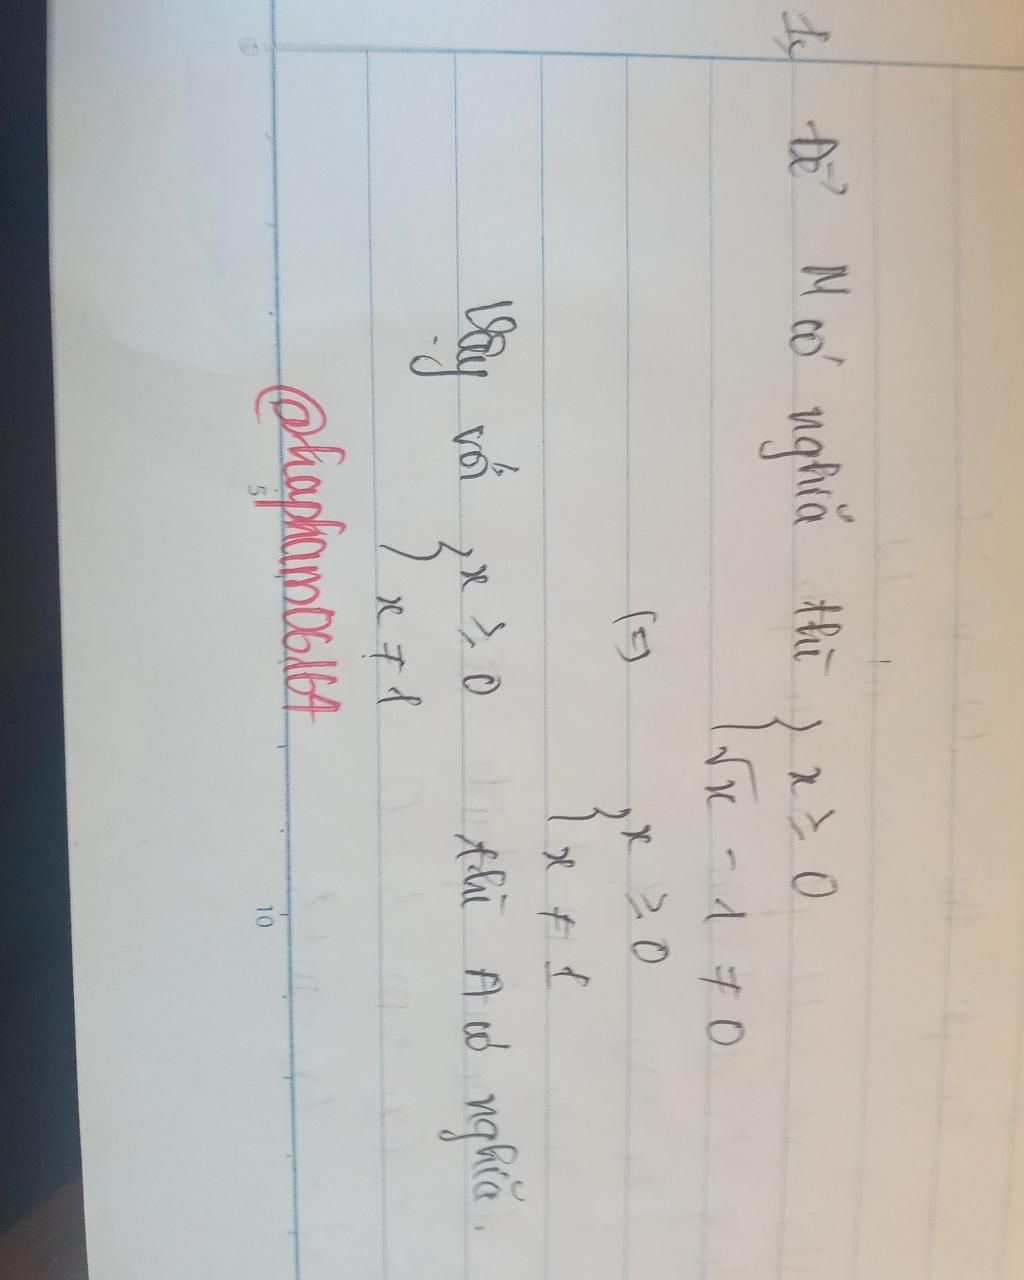 1, Để M có nghĩa thì { x ≥ 0
√x - 1 ≠ 0
(=) { x ≥ 0
x ≠ 1
Vậy với { x ≥ 0 thì A có nghĩa.
x ≠ 1
@hapham06164
5
10